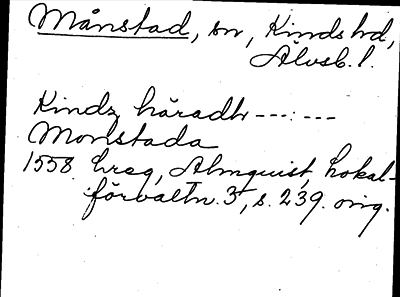 Månstad, sn, Kinds hd,
Älvsb. l.
Kindz häradh ---:---
Monstada
1558 hreg, Almquist, Lokal-
förvaltn. 3, s. 239. orig.